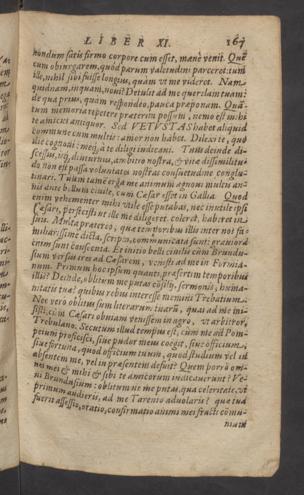 LIBER XI. 167
nondum satis firmo corpore cum esset, manè venit. Quẽ
cum obiurgarem, quòd parum valetudini parceret: tum
ille, nihil sibi fuisse longius, quàm vt me videret. Num
quidnam, inquam, noui? Detulit ad me querelam tuam:
de qua prius, quàm respondeo, pauca præponam. Quã-
tum memoria repetere præterita possum, nemo est mihi
te amicus antiquior. Sed VETVSTAS habet aliquid
commune cum multis: amor non habet. Dilexi te, quo
die cognoui: meq́; à te diligi iudicaui. Tuus deinde di-
scessus, isq́; diuturnus, ambitio nostra, & vitæ dissimilitu-
do non est passa voluntates nostras consuetudine conglu-
tinari. Tuum tamen erga me animum agnoui multis an-
nis ante bellum ciuile, cum Cæsar esset in Gallia. Quod
enim vehementer mihi vtile esse putabas, nec inutile ipsi
Cæsari, perfecisti vt ille me diligeret, coleret, haberet in
suis. Multa prætereo, quæ temporibus illis inter nos fa-
miliarissimè dicta, scripta, communicata sunt: grauiora
enim sunt consecuta. Et initio belli ciuilis cum Brundu-
sium versus ires ad Cæsarem, venisti ad me in Formia-
num. Primum hoc ipsum quanti, præsertim temporibus
illis? Deinde, oblitum me putas cõsilij, sermonis, huma-
nitatis tuæ? quibus rebus interesse memini Trebatium.
Nec vero oblitus sum literarum tuarũ, quas ad me mi-
sisti, cum Cæsari obuiam venissem in agro, vt arbitror,
Trebulano. Secutum illud tempus est, cum me ad Pom-
peium proficisci, siue pudor meus coegit, siue officium,
siue fortuna, quod officium tuum, quod studium vel in
absentem me, vel in præsentem defuit? Quem porrò om-
nes mei & mihi & sibi te amiciorem iudicauerunt? Ve-
ni Brundusium: oblitum ne me putas, qua celeritate, vt
primum audieris, ad me Tarento aduolaris? quæ tua
fuerit assessio, oratio, confirmatio animi mei fracti cõmu-
nium